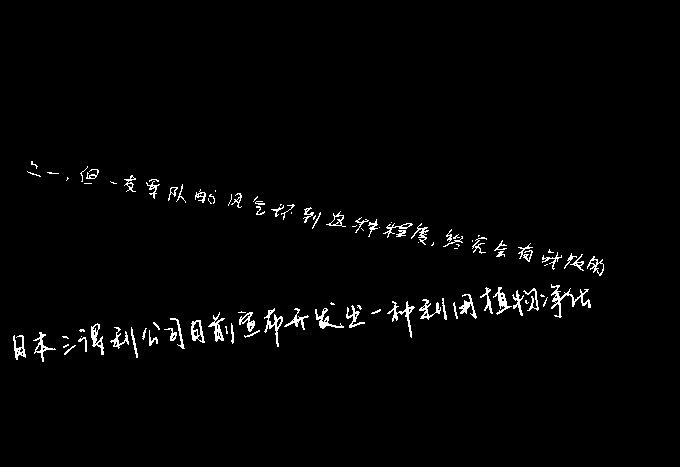 之一,但一支军队的风气坏到这种程度,终究会有战败的
日本三得利公司日前宣布开发出一种利用植物净化